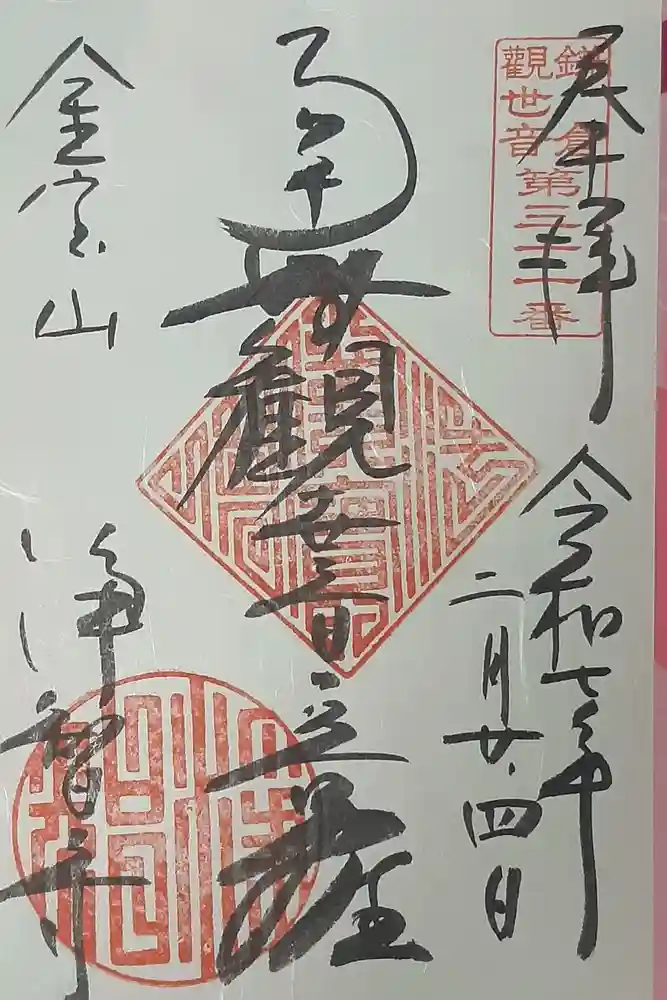 奉拝
鎌倉
觀世音第三十一番
令和七年
二月廿四日
南無観世音菩薩
金宝山
浄智寺